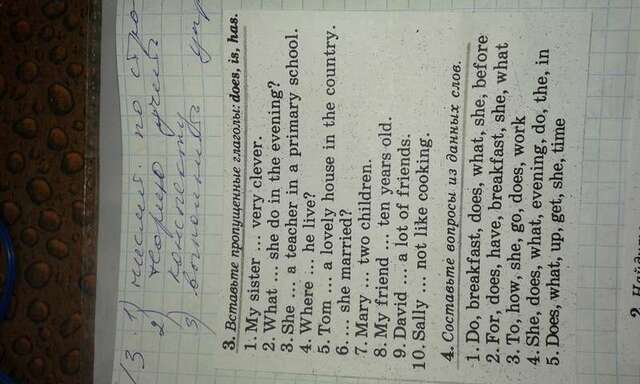 13 1) числит. по стро
2) теорию учить
конспекту
3) выполнить упр
3. Вставьте пропущенные глаголы: does, is, has.
1. My sister ... very clever.
2. What ... she do in the evening?
3. She ... a teacher in a primary school.
4. Where ... he live?
5. Tom ... a lovely house in the country.
6. ... she married?
7. Mary ... two children.
8. My friend ... ten years old.
9. David ... a lot of friends.
10. Sally ... not like cooking.
4. Составьте вопросы из данных слов.
1. Do, breakfast, does, what, she, before
2. For, does, have, breakfast, she, what
3. To, how, she, go, does, work
4. She, does, what, evening, do, the, in
5. Does, what, up, get, she, time
2. Найди